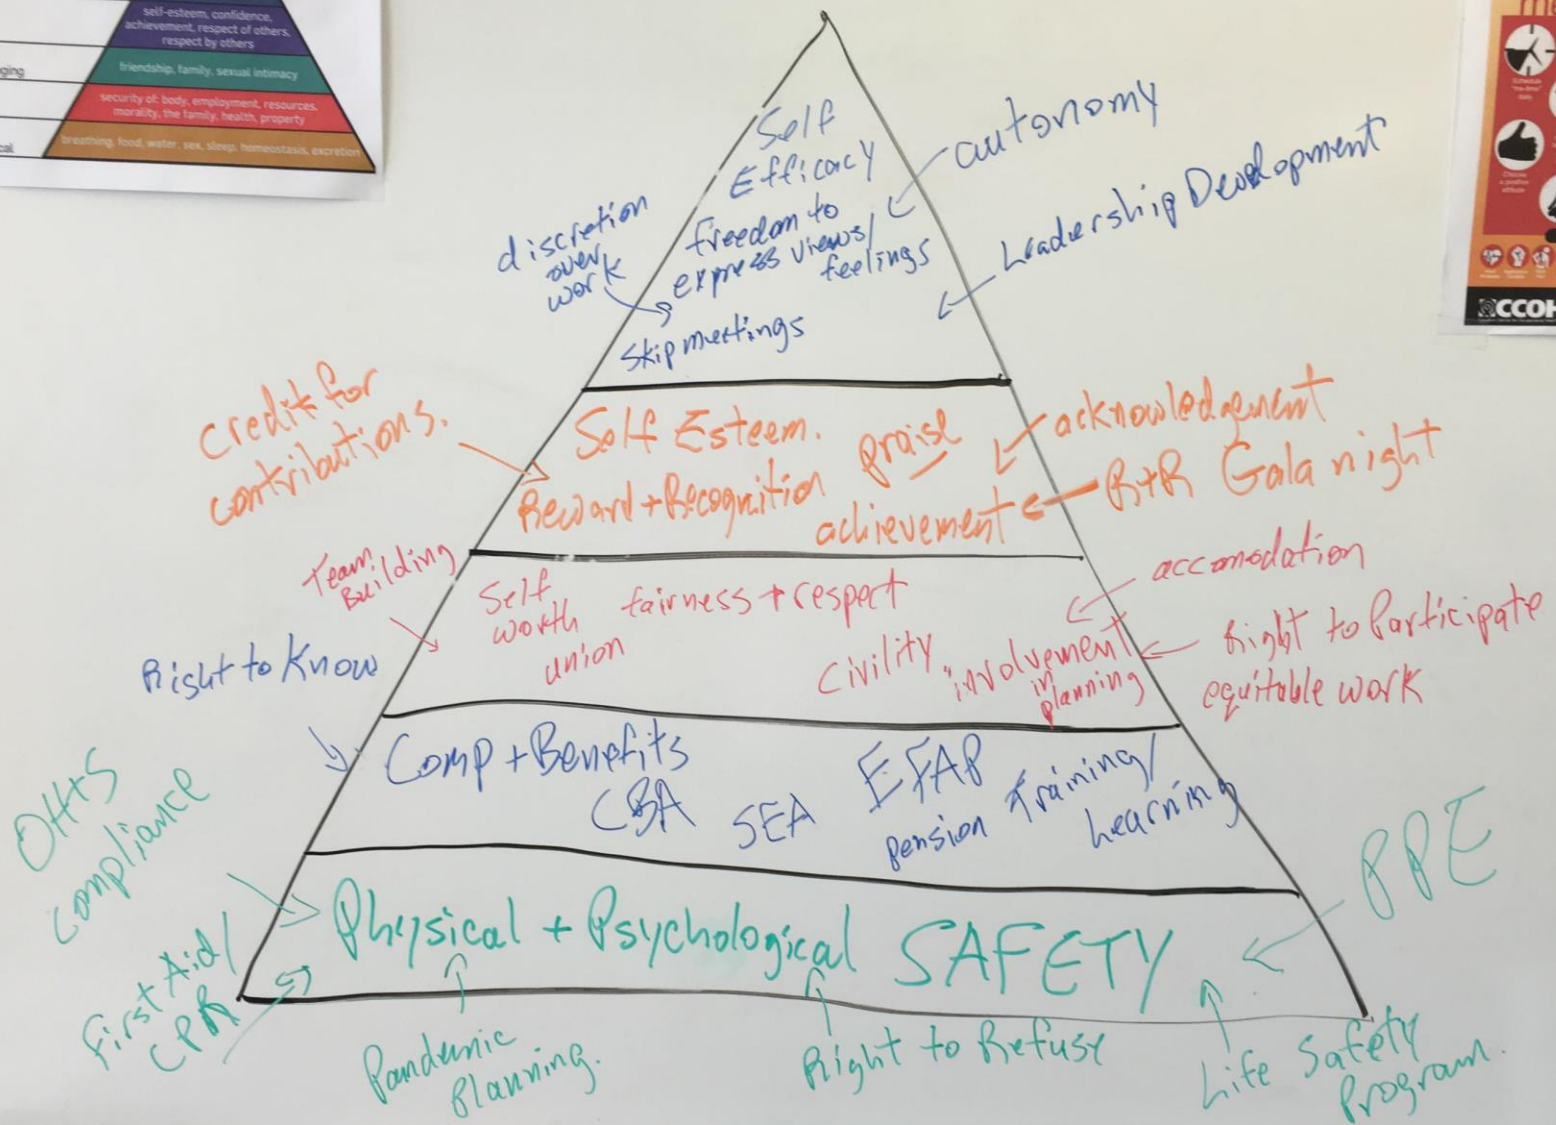 self-esteem, confidence,
achievement, respect of others,
respect by others
friendship, family, sexual intimacy
security of: body, employment, resources,
morality, the family, health, property
breathing, food, water, sex, sleep, homeostasis, excretion
Self
Efficacy
autonomy
freedom to
express views/
feelings
discretion
over
work
Leadership Development
Skip meetings
Credit for
contributions.
Self Esteem.
praise
acknowledgement
Reward + Recognition
achievement
R+R Gala night
Team
Building
Self
worth
union
fairness + respect
accomodation
Civility
involvement
in
planning
Right to Participate
equitable work
Right to Know
Comp + Benefits
CBA
SEA
EFAP
pension
Training/
Learning
OH+S
compliance
PPE
Physical + Psychological SAFETY
First Aid/
CPR
Pandemic
Planning.
Right to Refuse
Life Safety
Program.
CCOH